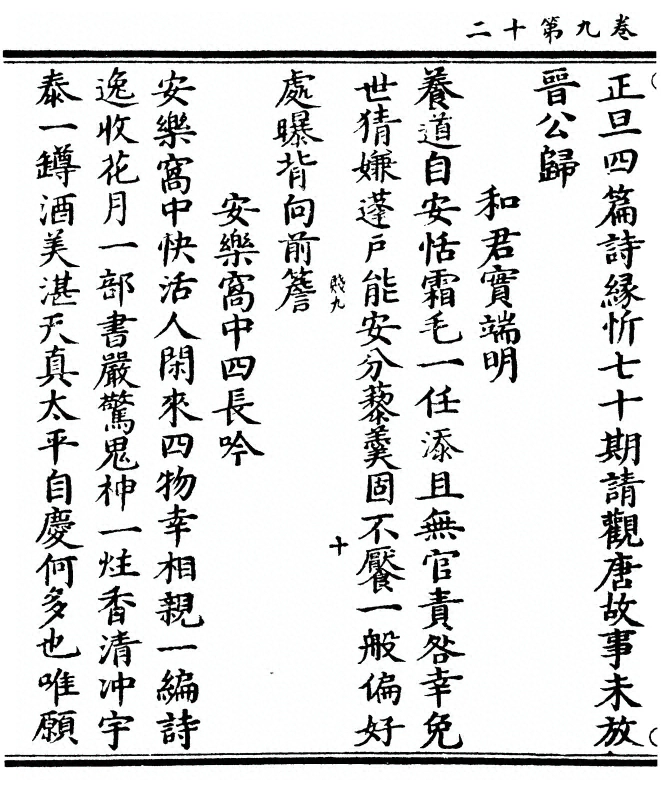 卷九第十二
正旦四篇詩緣忻七十期請觀唐故事未放
晉公歸
和君實端明
養道自安恬霜毛一任添且無官責咎幸免
世猜嫌蓬戶能安分藜羹固不饜一般偏好
賤九
十
處曝背向前簷
安樂窩中四長吟
安樂窩中快活人閑來四物幸相親一編詩
逸收花月一部書嚴驚鬼神一炷香清冲宇
泰一罇酒美湛天真太平自慶何多也唯願